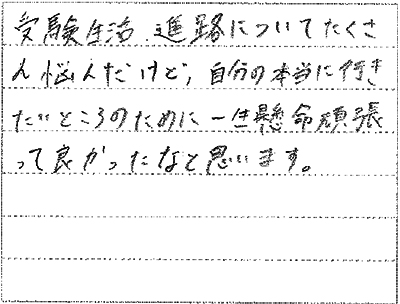 受験生活、進路についてたくさ
ん悩んだけど、自分の本当に行き
たいところのために一生懸命頑張
って良かったなと思います。